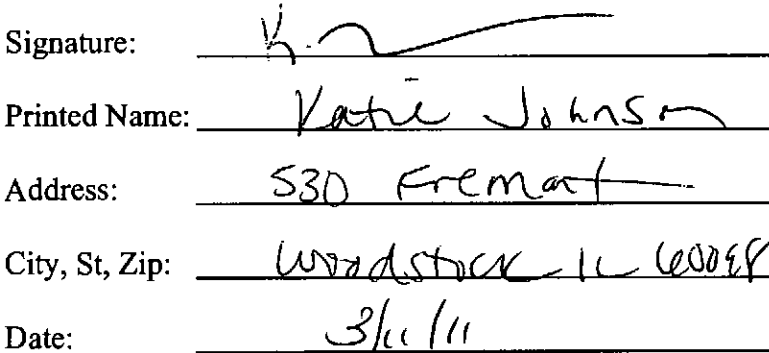 Signature: K.
Printed Name: Katie Johnson
Address: 530 Fremont
City, St, Zip: Woodstock IL 60098
Date: 3/11/11